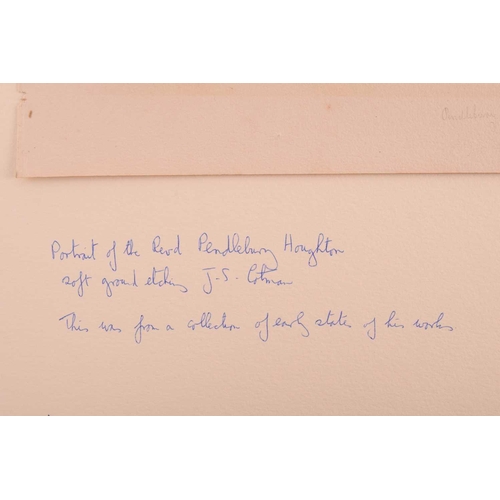 Pendlebury
Portrait of the Revd Pendlebury Houghton
soft ground etching J-S. Cotman
This was from a collection of early states of his works